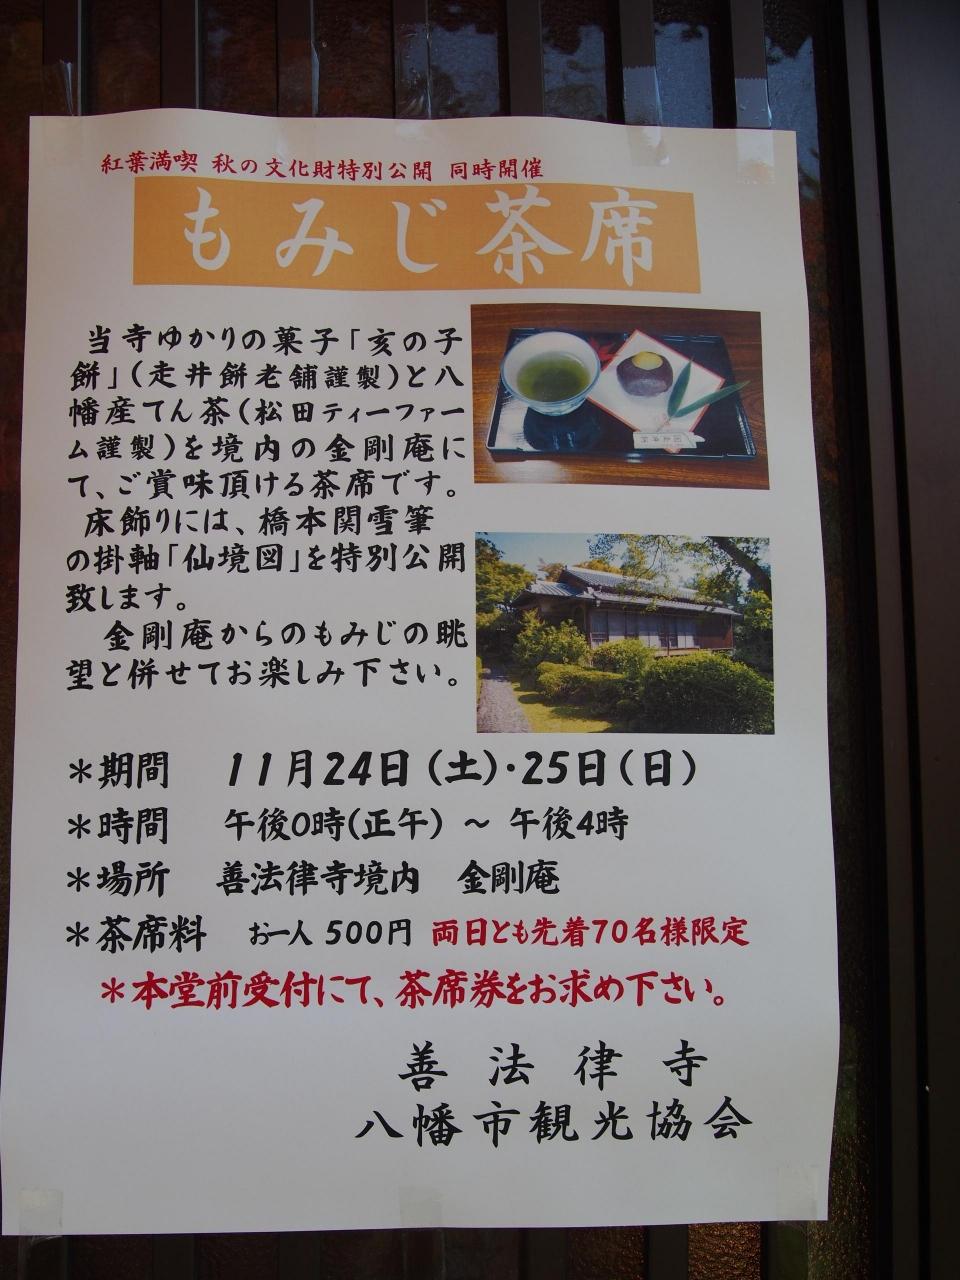 紅葉満喫 秋の文化財特別公開 同時開催
もみじ茶席
当寺ゆかりの菓子「亥の子
餅」(走井餅老舗謹製)と八
幡産てん茶(松田ティーファー
ム謹製)を境内の金剛庵に
て、ご賞味頂ける茶席です。
床飾りには、橋本関雪筆
の掛軸「仙境図」を特別公開
致します。
金剛庵からのもみじの眺
望と併せてお楽しみ下さい。
＊期間 11月24日(土)・25日(日)
＊時間 午後0時(正午) ～ 午後4時
＊場所 善法律寺境内 金剛庵
＊茶席料 お一人 500円 両日とも先着70名様限定
＊本堂前受付にて、茶席券をお求め下さい。
善法律寺
八幡市観光協会